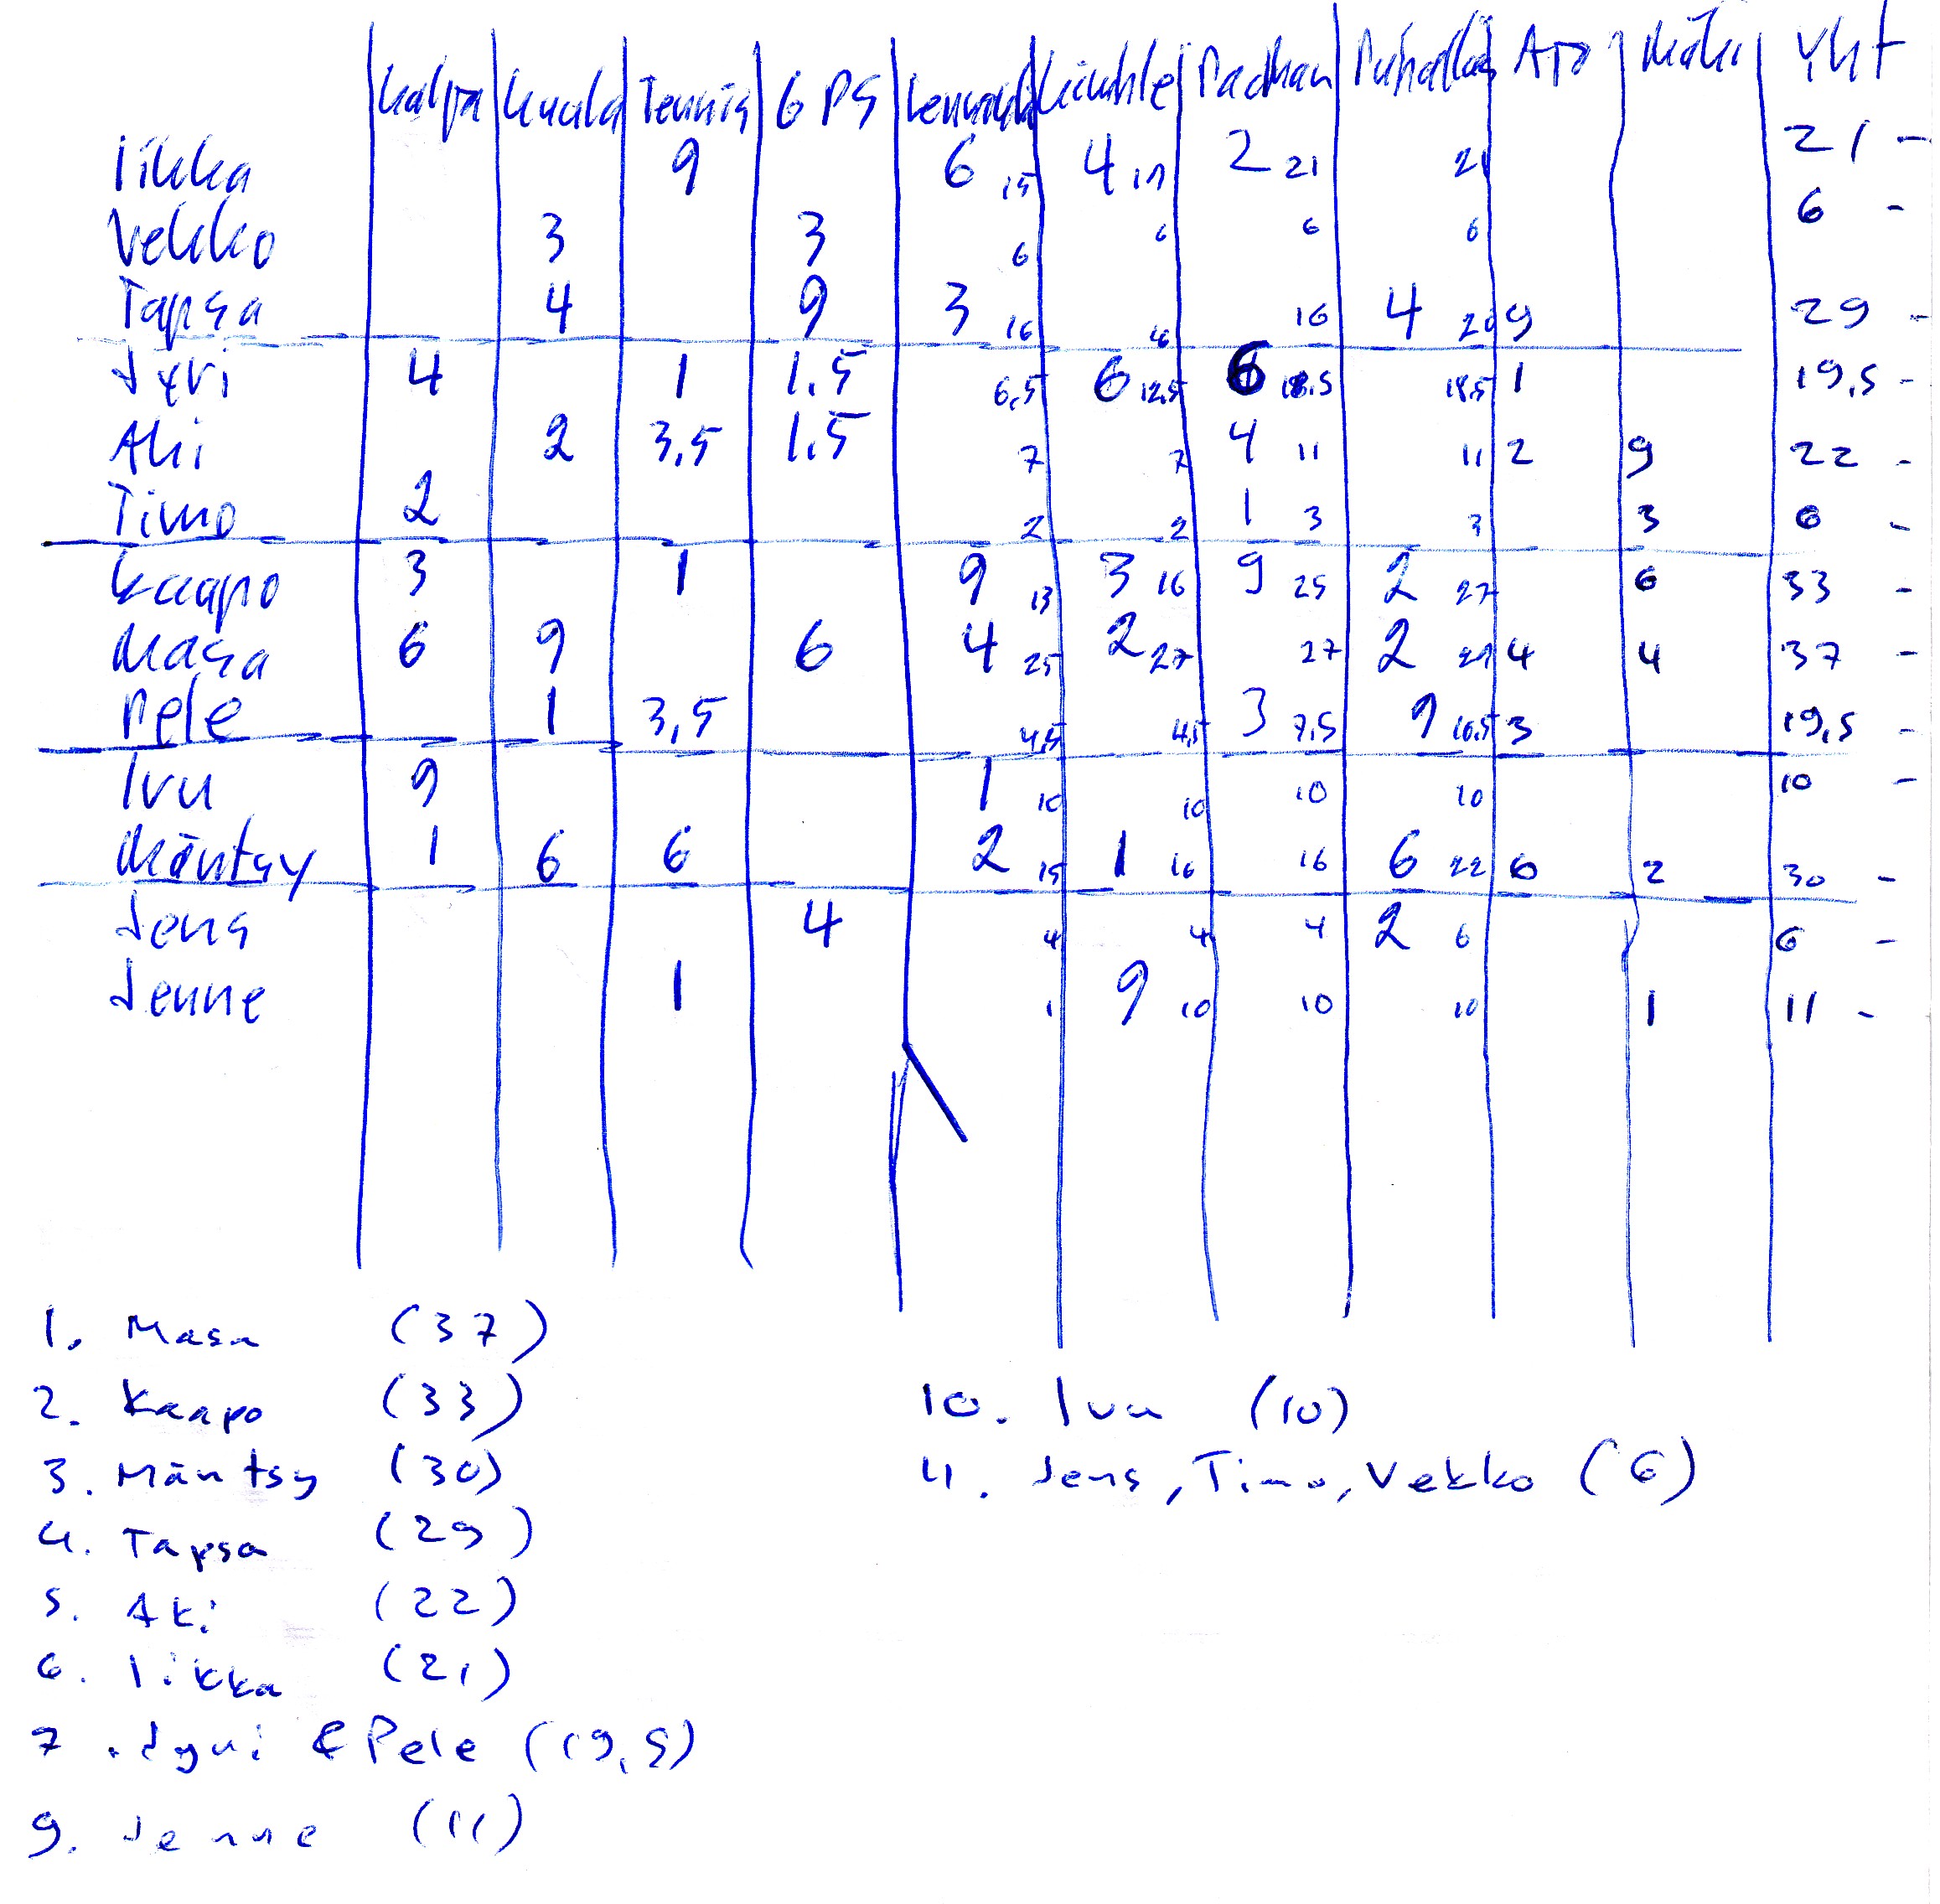 Kalpa Kuula Tennis GPS Kiekhle Padhan Puhallus Apo Mäki Yht
Iikka 9 6 15 4 19 2 21 21 21 -
Vekko 3 3 6 6 6 6 6 -
Tapsa 4 9 3 16 16 4 20 9 29 -
Jyri 4 1 1,5 6,5 6 12,5 6 18,5 18,5 1 19,5 -
Aki 2 3,5 1,5 7 7 4 11 11 2 9 22 -
Timo 2 2 2 1 3 3 3 6 -
Kaapo 3 1 9 13 3 16 9 25 2 27 6 33 -
Masa 6 9 6 4 25 2 27 27 2 29 4 4 37 -
Pele 1 3,5 4,5 4,5 3 7,5 9 16,5 3 19,5 -
Ivu 9 1 10 10 10 10 10 -
Mäntsy 1 6 6 2 15 1 16 16 6 22 6 2 30 -
Jens 4 4 4 4 2 6 6 -
Jenne 1 1 9 10 10 10 1 11 -
1. Masa (37)
2. Kaapo (33)
3. Mäntsy (30)
4. Tapsa (29)
5. Aki (22)
6. Iikka (21)
7. Jyri & Pele (19,5)
9. Jenne (11)
10. Ivu (10)
11. Jens, Timo, Vekko (6)